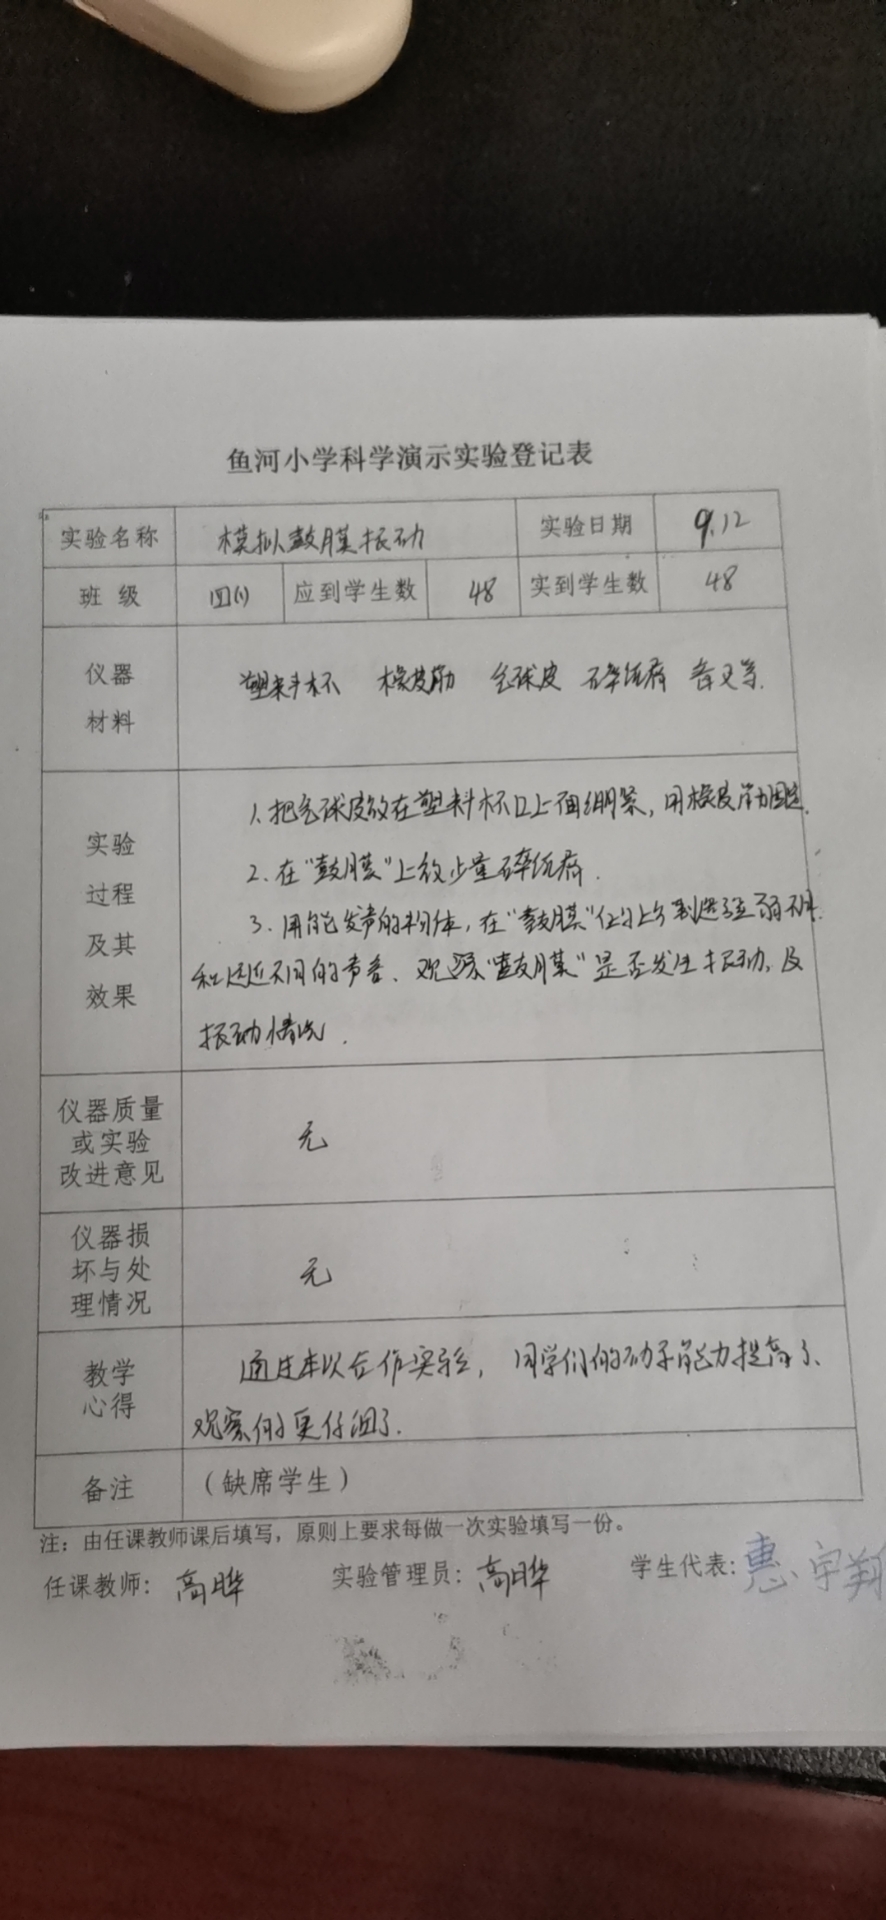 鱼河小学科学演示实验登记表
实验名称 模拟鼓膜振动 实验日期 9.12
班 级 四(1) 应到学生数 48 实到学生数 48
仪器
材料
塑料杯 橡皮筋 气球皮 碎纸屑 音叉等.
实验
过程
及其
效果
1.把气球皮放在塑料杯口上面绷紧,用橡皮筋固定.
2.在"鼓膜"上放少量碎纸屑.
3.用能发声的物体,在"鼓膜"上方制造强弱不同
和远近不同的声音、观察"鼓膜"是否发生振动,及
振动情况.
仪器质量
或实验
改进意见
无
仪器损
坏与处
理情况
无
教学
心得
通过本次合作实验,同学们的动手能力提高了、
观察的更仔细了.
备注 (缺席学生)
注:由任课教师课后填写,原则上要求每做一次实验填写一份。
任课教师: 高晔 实验管理员: 高晔 学生代表: 惠宇翔